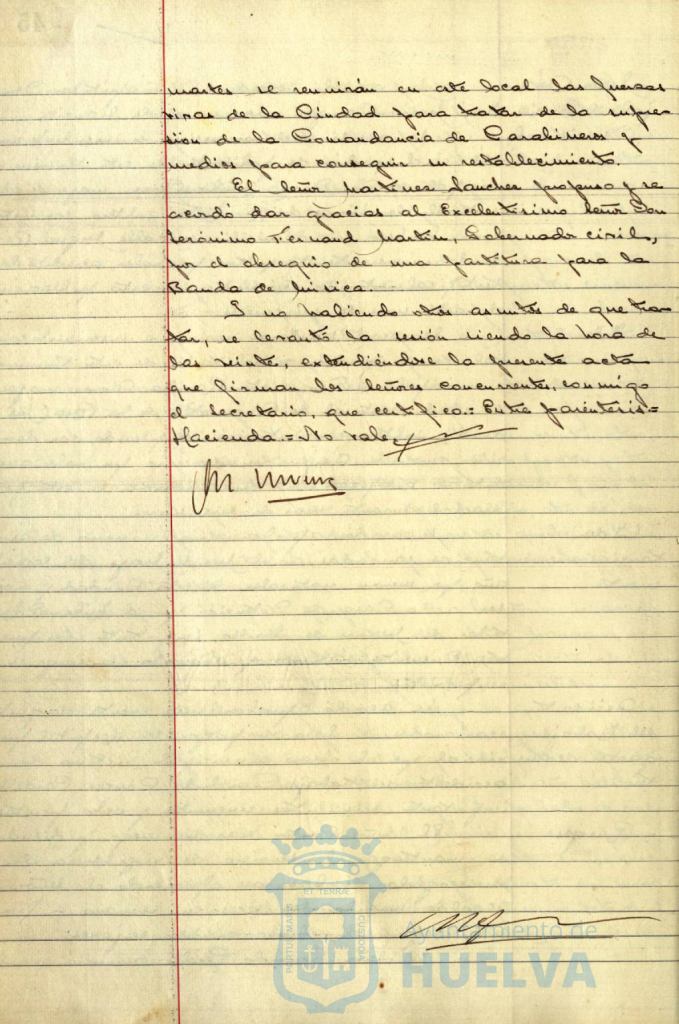 martes se reunirán en este local las fuerzas
vivas de la Ciudad para tratar de la supre-
sión de la Comandancia de Carabineros y
medios para conseguir su restablecimiento.
El Señor Martinez Sanchez propuso y se
acordó dar gracias al Excelentísimo Señor Don
Jerónimo Fernaud Martin, Gobernador civil,
por el obsequio de una partitura para la
Banda de Música.
Y no habiendo otros asuntos de que tra-
tar, se levantó la sesión siendo la hora de
las veinte, extendiéndose la presente acta
que firman los Señores concurrentes, conmigo
el Secretario, que certifico.= Entre paréntesis=
Hacienda.= No vale,
ET TERRÆ
PORTUS MARIS
CUSTODIA
Ayuntamiento de
HUELVA